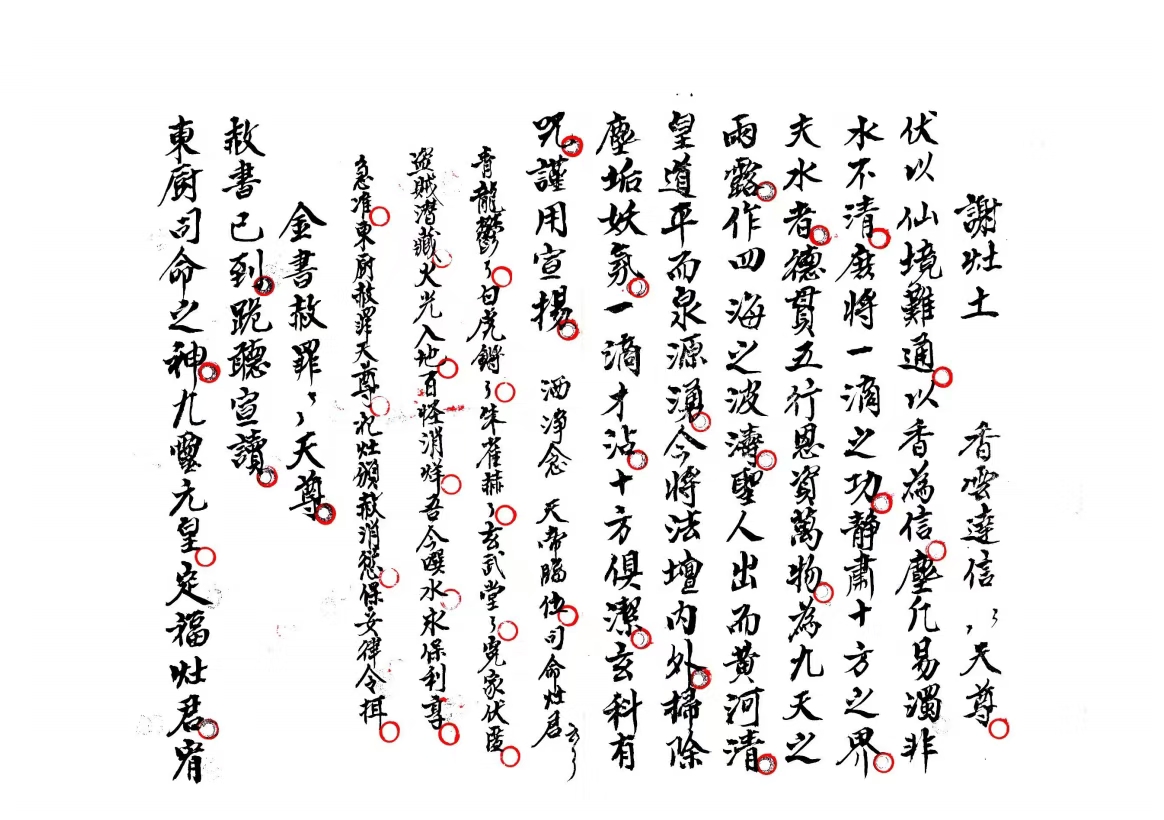 謝灶土　香雲達信〻〻天尊
伏以仙境難通以香為信塵凡易濁非
水不清䕻將一滴之功静肅十方之界
夫水者德貫五行恩資萬物為九天之
雨露作四海之波濤聖人出而黄河清
皇道平而泉源湧今將法壇内外掃除
塵垢妖氛一滴才沾十方俱潔玄科有
咒謹用宣揚　洒净念　天帝腦位司命灶君〻〻〻
青龍鬱〻白虎鏘〻朱雀赫〻玄武堂〻冤家伏匿
盗賊潜藏火光入地百怪消烊吾今噀水永保利尊
急准東厨赦罪天尊祀灶頒赦消愆保安律令揖
金書赦罪〻〻天尊
赦書已到跪聽宣讀
東厨司命之神九靈元皇定福灶君宥